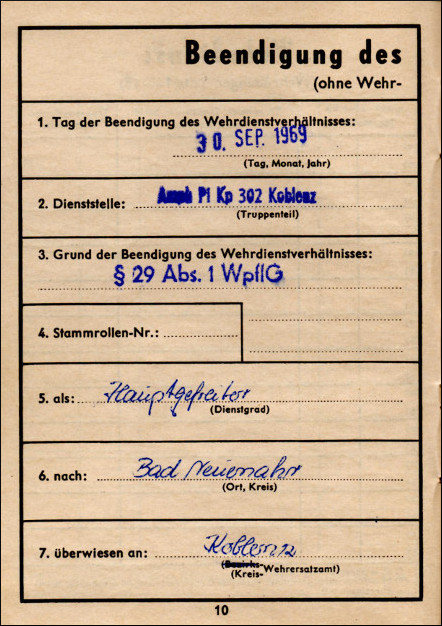 Beendigung des
(ohne Wehr-
1. Tag der Beendigung des Wehrdienstverhältnisses:
30. SEP. 1969
(Tag, Monat, Jahr)
2. Dienststelle: Amph Pi Kp 302 Koblenz
(Truppenteil)
3. Grund der Beendigung des Wehrdienstverhältnisses:
§ 29 Abs. 1 WpflG
4. Stammrollen-Nr.:
5. als: Hauptgefreiter
(Dienstgrad)
6. nach: Bad Neuenahr
(Ort, Kreis)
7. überwiesen an: Koblenz
(Bezirks-
(Kreis-Wehrersatzamt)
10